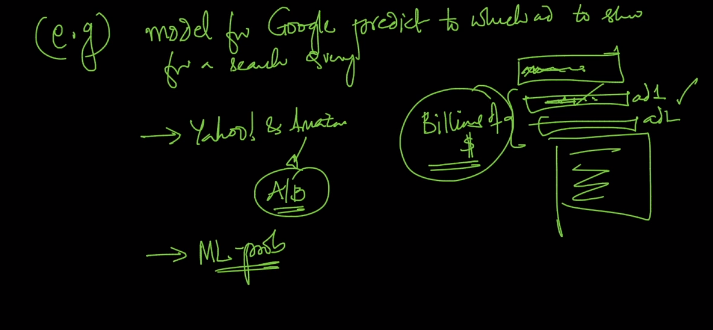 (e.g) model for Google predict to which ad to show
for a search Query
→ Yahoo! & Amazon
A/B
→ ML-prob
Billions of
$
ad1 ✓
ad2